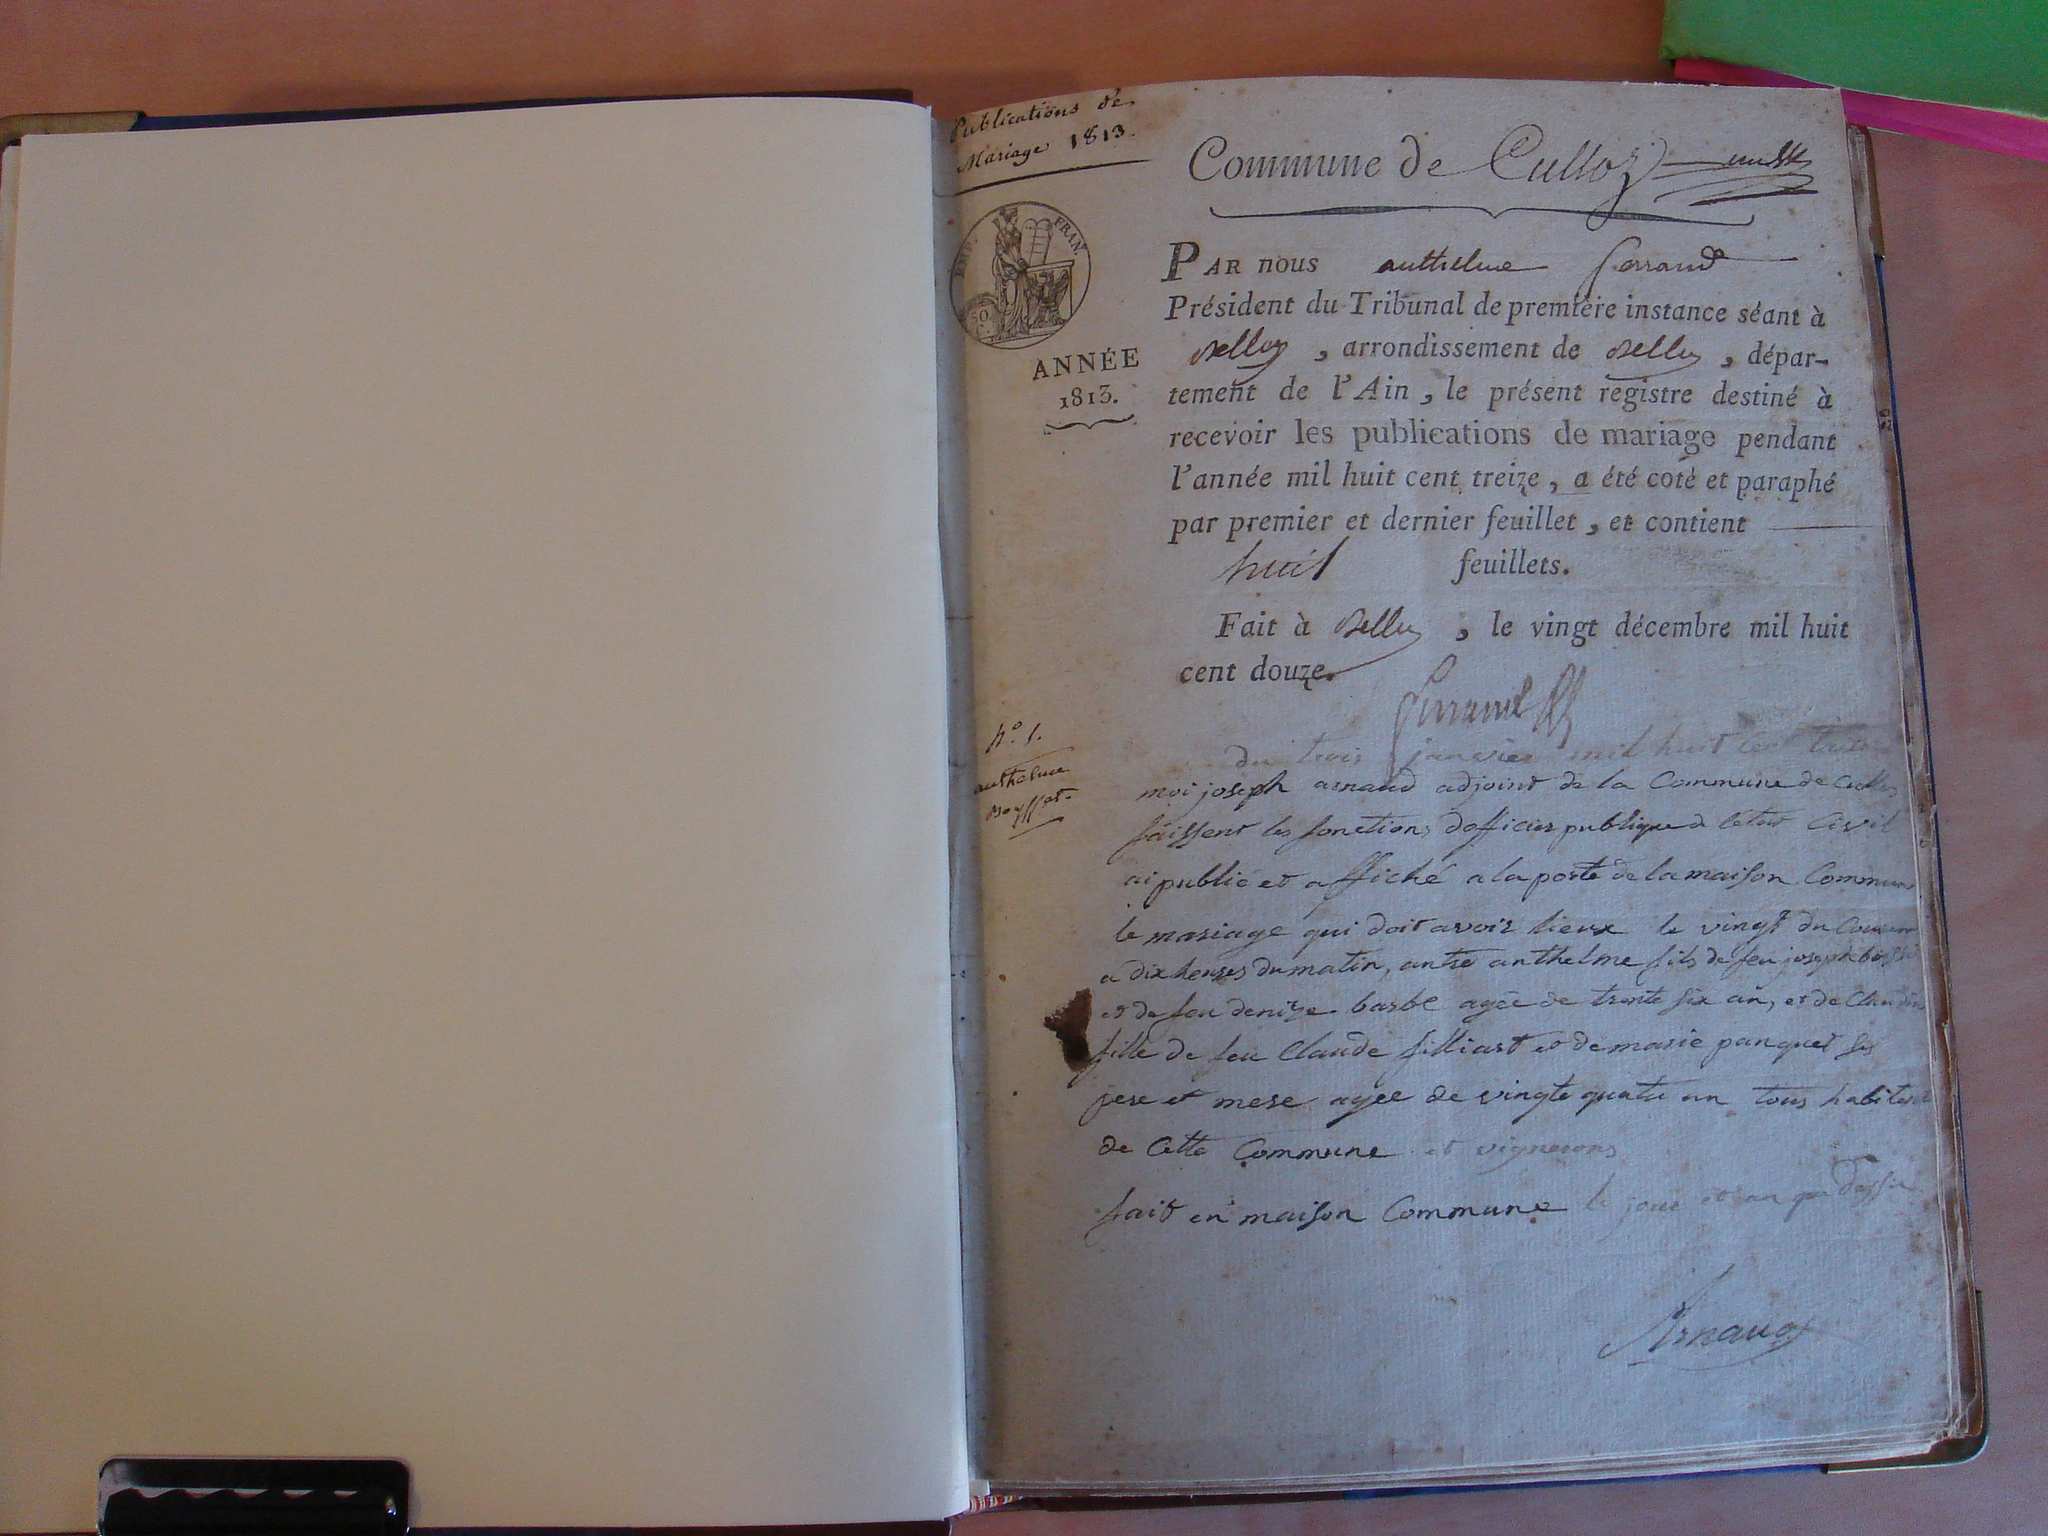 Publications de
Mariage 1813.
Commune de Culloz
EMP. FRAN.
50
C.
ANNÉE
1813.
PAR nous anthelme ferrand
Président du Tribunal de première instance séant à
Belley, arrondissement de Belley, dépar-
tement de l'Ain, le présent registre destiné à
recevoir les publications de mariage pendant
l'année mil huit cent treize, a été coté et paraphé
par premier et dernier feuillet, et contient
huit feuillets.
Fait à Belley, le vingt décembre mil huit
cent douze.
ferrand
N.° 1.
anthelme
du trois janvier mil huit cent treize
moi joseph arnaud adjoint de la Commune de Culloz
faissent les fonctions dofficier publique de letat Civil
ai publié et affiché a la porte de la maison Commune
le mariage qui doit avoir lieux le vingt du Courant
a dix heures du matin, antre anthelme fils de feu joseph
et de feu denize barbe agée de trente six an, et de Claudine
fille de feu Claude filliart et de marie panquet ses
pere et mere agee de vingte quatre an tous habitent
de Cette Commune et vignerons
fait en maison Commune le jour et an que dessus
Arnaud